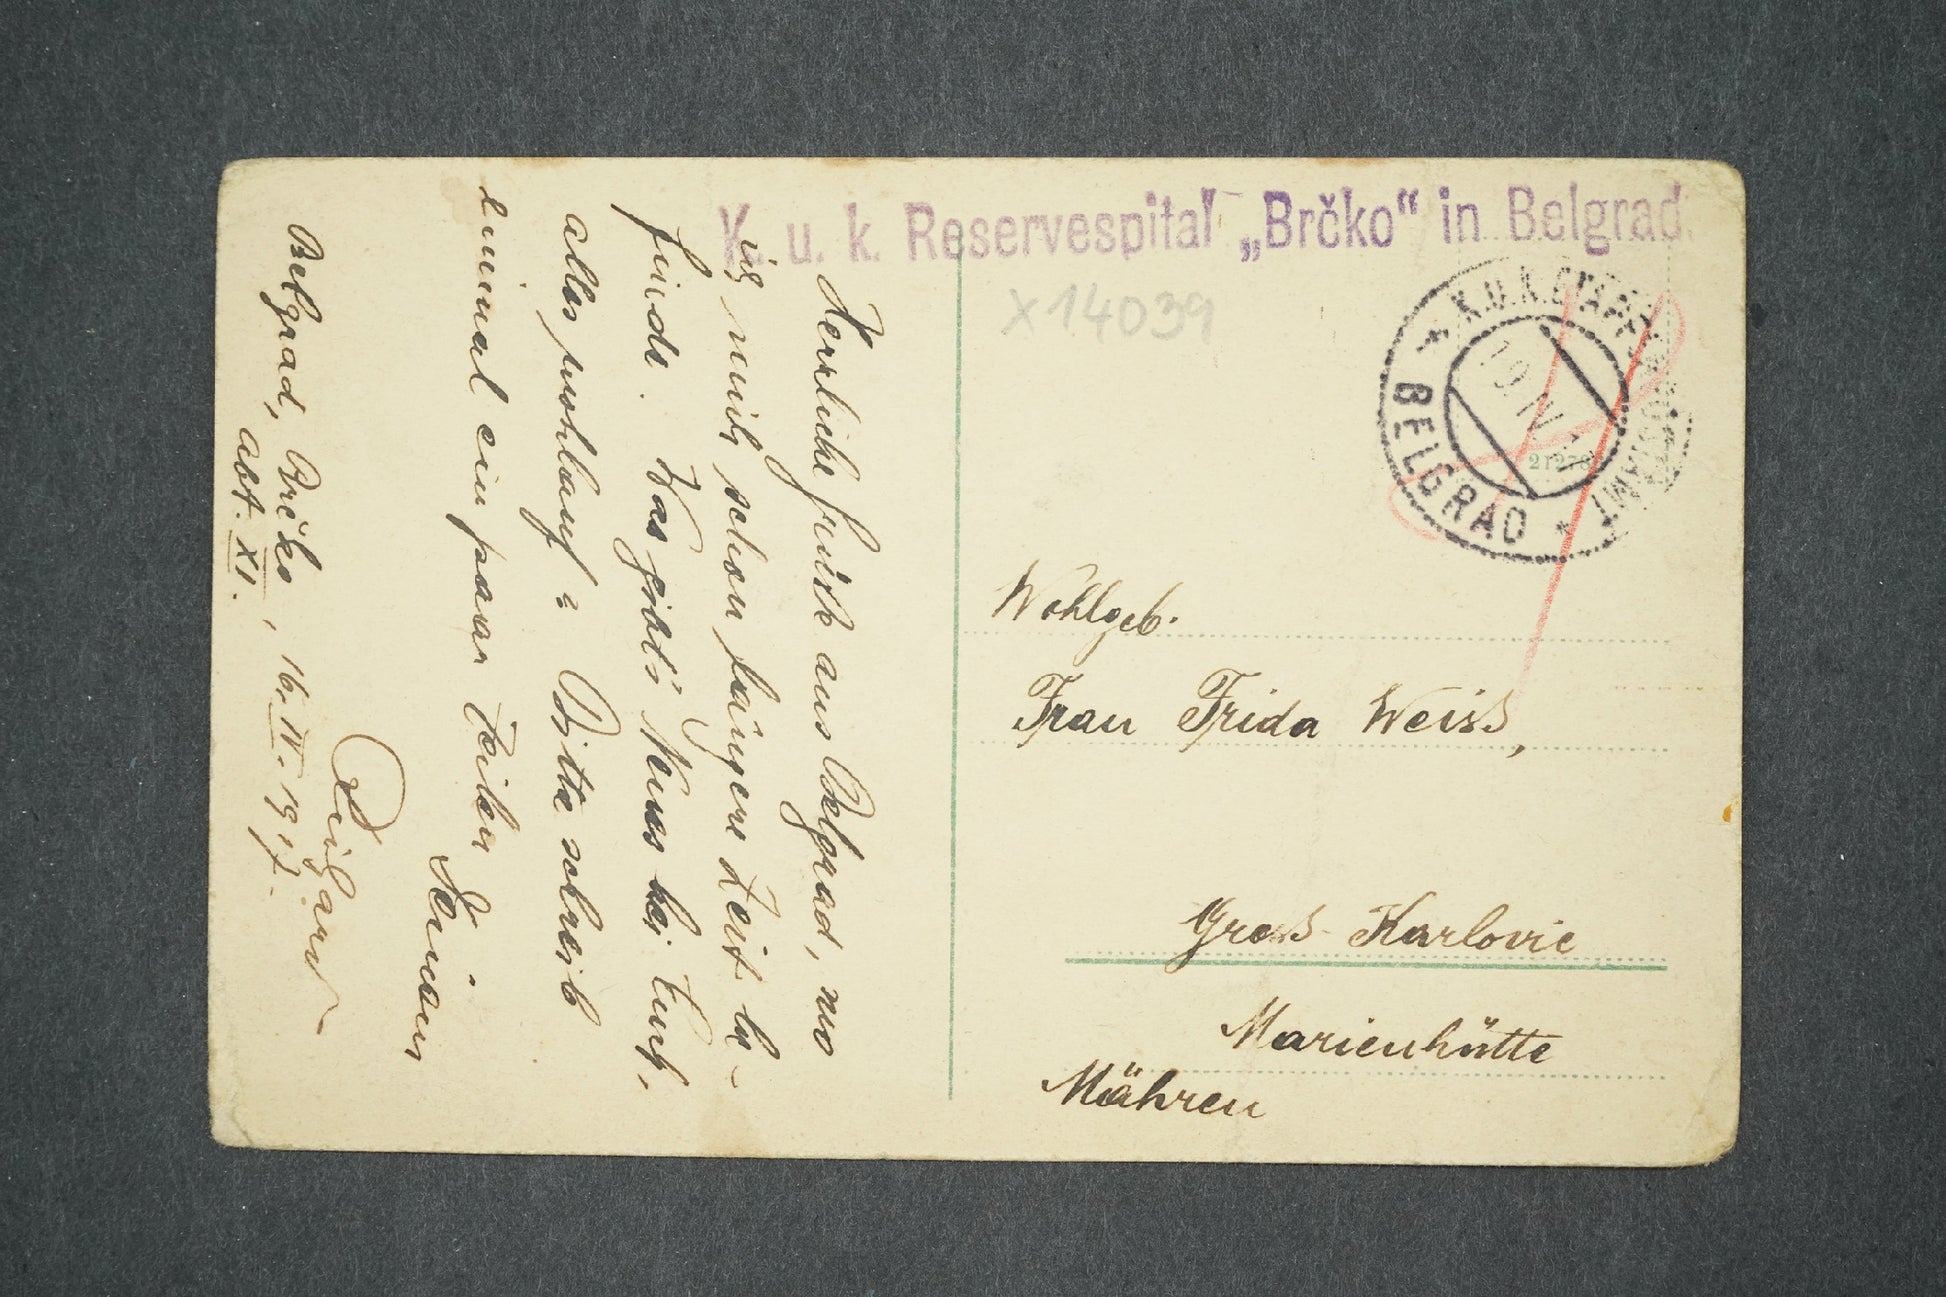 K. u. k. Reservespital „Brčko“ in Belgrad.
X14039
K. U. K. ETAPPENPOSTAMT
BELGRAD
19. IV. 1
21276
Wohlgeb.
Frau Frida Weiss,
Gross Karlovic
Marienhütte
Mähren
Herrliche Grüße aus Belgrad, wo
ich mich schon längere Zeit be-
finde. Was gibt's Neues bei Euch,
alles wohlauf? Bitte schreib
einmal ein paar Zeilen
Deinem
Richard
Belgrad, Brčko, 16. IV. 1917.
Abt. XI.